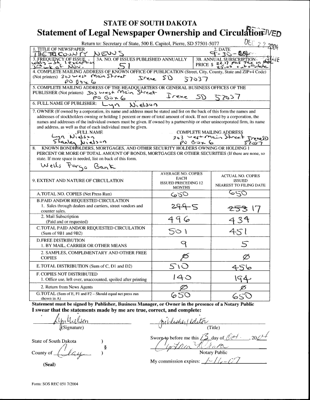 STATE OF SOUTH DAKOTA
Statement of Legal Newspaper Ownership and Circulation
RECEIVED
DEC 27
Return to: Secretary of State, 500 E. Capitol, Pierre, SD 57501-5077
1. TITLE OF NEWSPAPER
TRI-COUNTY NEWS
2. DATE
9-30-04
3. FREQUENCY OF ISSUE
3A. NO. OF ISSUES PUBLISHED ANNUALLY
51
3B. ANNUAL SUBSCRIPTION
PRICE $
4. COMPLETE MAILING ADDRESS OF KNOWN OFFICE OF PUBLICATION (Street, City, County, State and ZIP+4 Code)
(Not printers) 202 West Main Street Irene SD 57037
PO Box 6
5. COMPLETE MAILING ADDRESS OF THE HEADQUARTERS OR GENERAL BUSINESS OFFICES OF THE
PUBLISHER (Not printer) 202 West Main Street
PO Box 6 Irene SD 57037
6. FULL NAME OF PUBLISHER: Lyn Nielson
7. OWNER (If owned by a corporation, its name and address must be stated and list on the back of this form the names and
addresses of stockholders owning or holding 1 percent or more of total amount of stock. If not owned by a corporation, the
names and addresses of the individual owners must be given. If owned by a partnership or other unincorporated firm, its name
and address, as well as that of each individual must be given.
FULL NAME
COMPLETE MAILING ADDRESS
Lyn Nielson
202 West Main Street Irene SD
PO Box 6 57037
8. KNOWN BONDHOLDERS, MORTGAGES, AND OTHER SECURITY HOLDERS OWNING OR HOLDING 1
PERCENT OR MORE OF TOTAL AMOUNT OF BONDS, MORTGAGES OR OTHER SECURITIES (If there are none, so
state. If more space is needed, list on back of this form.
Wells Fargo Bank
9. EXTENT AND NATURE OF CIRCULATION
AVERAGE NO. COPIES
EACH
ISSUED PRECEDING 12
MONTHS
ACTUAL NO. COPIES
ISSUED
NEAREST TO FILING DATE
A. TOTAL NO. COPIES (Net Press Run)
650
650
B. PAID AND/OR REQUESTED CIRCULATION
1. Sales through dealers and carriers, street vendors and
counter sales.
17
2. Mail Subscription
(Paid and/or requested)
496
434
C. TOTAL PAID AND/OR REQUESTED CIRCULATION
(Sum of 9B1 and 9B2)
501
451
D. FREE DISTRIBUTION
1. BY MAIL, CARRIER OR OTHER MEANS
9
5
2. SAMPLES, COMPLIMENTARY, AND OTHER FREE
COPIES
Ø
Ø
E. TOTAL DISTRIBUTION (Sum of C, D1 and D2)
510
456
F. COPIES NOT DISTRIBUTED
1. Office use, left over, unaccounted, spoiled after printing
140
194
2. Return from News Agents
Ø
Ø
G. TOTAL (Sum of E, F1 and F2 - Should equal net press run
shown in A)
650
650
Statement must be signed by Publisher, Business Manager, or Owner in the presence of a Notary Public
I swear that the statements made by me are true, correct, and complete:
Lyn Nielson
(Signature)
(Title)
State of South Dakota )
§
County of Clay )
(Seal)
Sworn to before me this 13 day of
Notary Public
My commission expires: 1-16-07
Form: SOS REC 051 7/2004